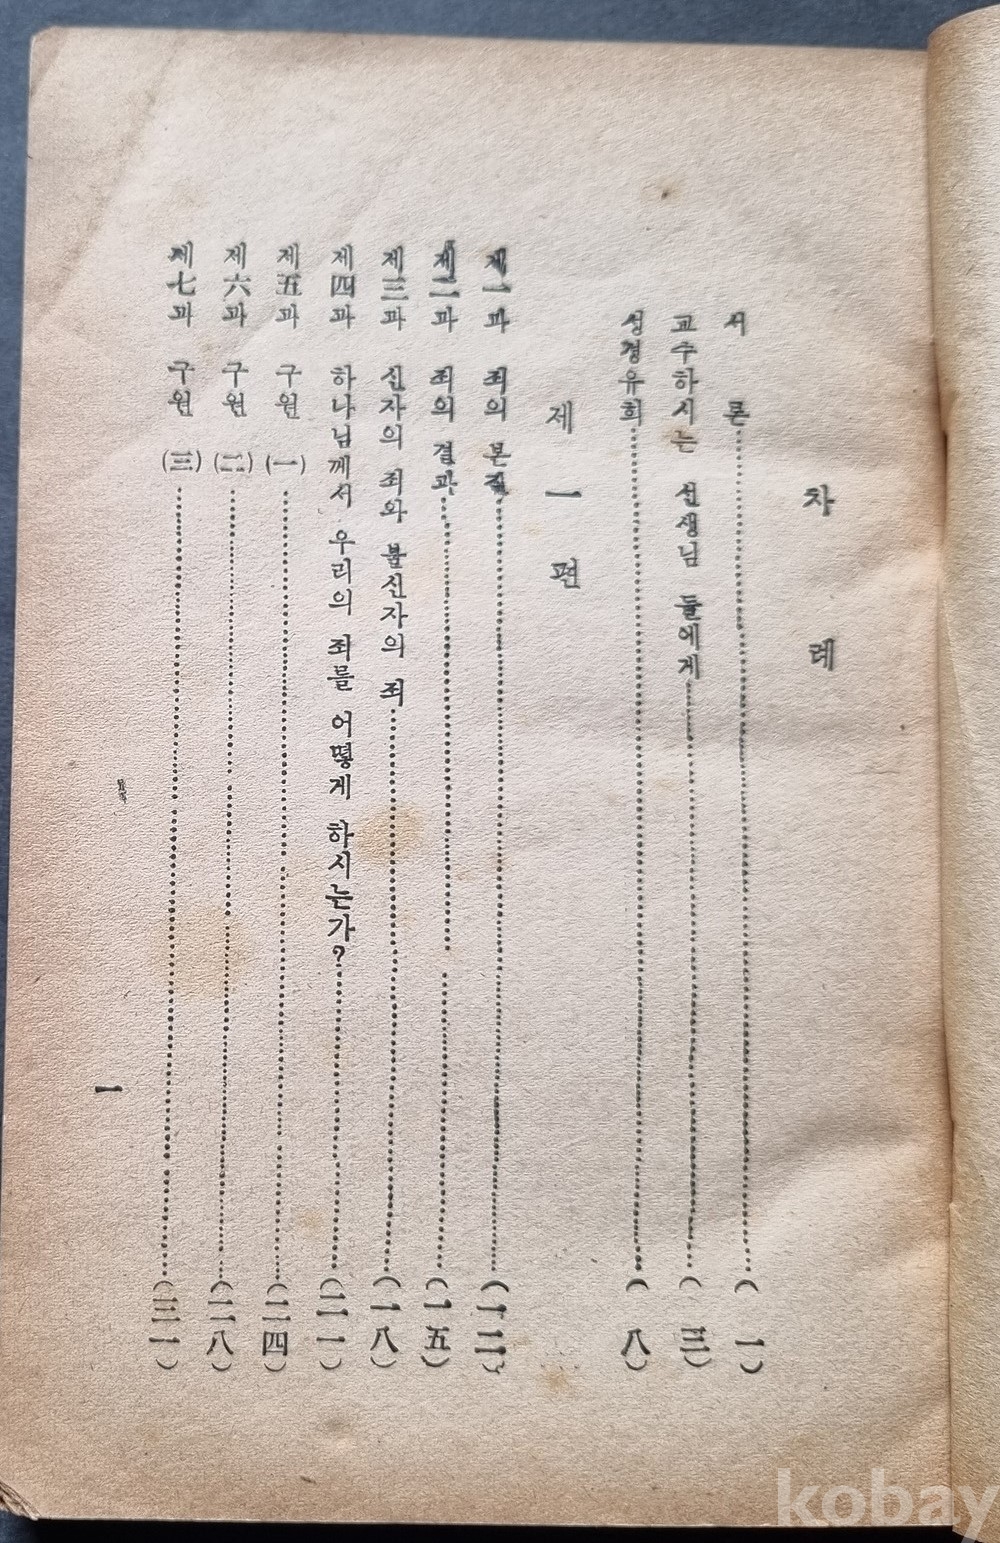 차 례
서 론 (一)
교수하시는 선생님 들에게 (三)
성경유희 (八)
제 一 편
제一과 죄의 본질 (一二)
제二과 죄의 결과 (一五)
제三과 신자의 죄와 불신자의 죄 (一八)
제四과 하나님께서 우리의 죄를 어떻게 하시는가? (二一)
제五과 구원 (一) (二四)
제六과 구원 (二) (二八)
제七과 구원 (三) (三一)
一
kobay